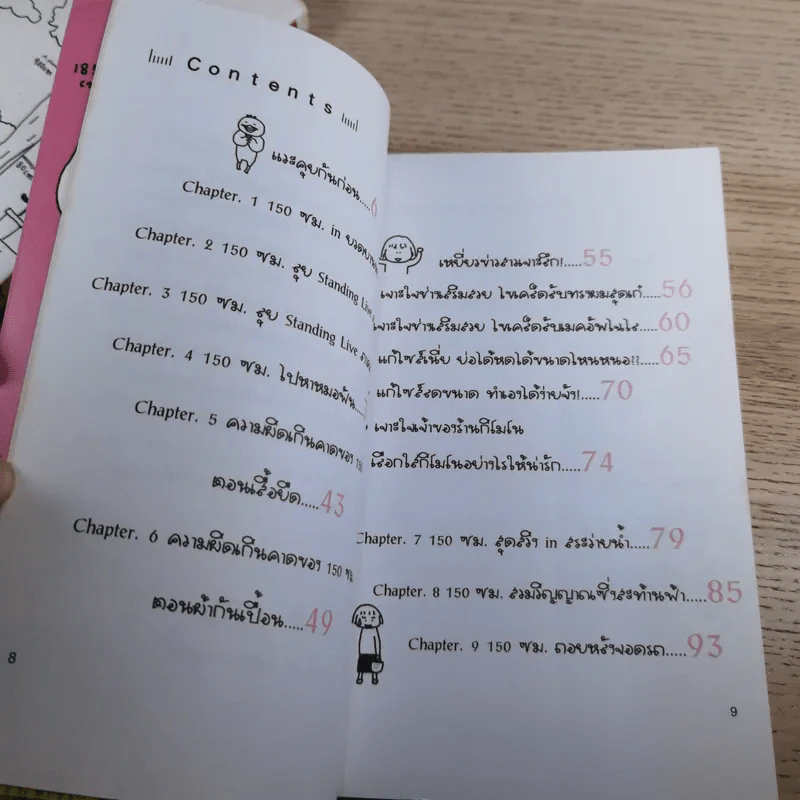 Contents
แวะคุยกันก่อน.....6
Chapter. 1 150 ซม. in
Chapter. 2 150 ซม. ลุย Standing Live
Chapter. 3 150 ซม. ลุย Standing Live
Chapter. 4 150 ซม. ไปหาหมอฟัน
Chapter. 5 ความผิดเกินคาดของ 150
ตอนเสื้อยืด.....43
Chapter. 6 ความผิดเกินคาดของ 150 ซม.
ตอนผ้ากันเปื้อน.....49
8
เหยี่ยวข่าวสาวเจาะลึก!.....55
เจาะใจช่างเสริมสวย ไขเคล็ดลับทรงผมสุดเก๋.....56
เจาะใจช่างเสริมสวย ไขเคล็ดลับเมคอัพไฉไล.....60
แก้ไซส์เนี่ย ย่อได้หดได้ขนาดไหนหนอ?!.....65
แก้ไซส์ลดขนาด ทำเองได้ง่ายจัง!.....70
เจาะใจเจ้าของร้านกิโมโน
เลือกใส่กิโมโนอย่างไรให้น่ารัก.....74
Chapter. 7 150 ซม. สุดสวิง in สระว่ายน้ำ.....79
Chapter. 8 150 ซม. สวมวิญญาณซิ่งสะท้านฟ้า.....85
Chapter. 9 150 ซม. ถอยหลังจอดรถ.....93
9